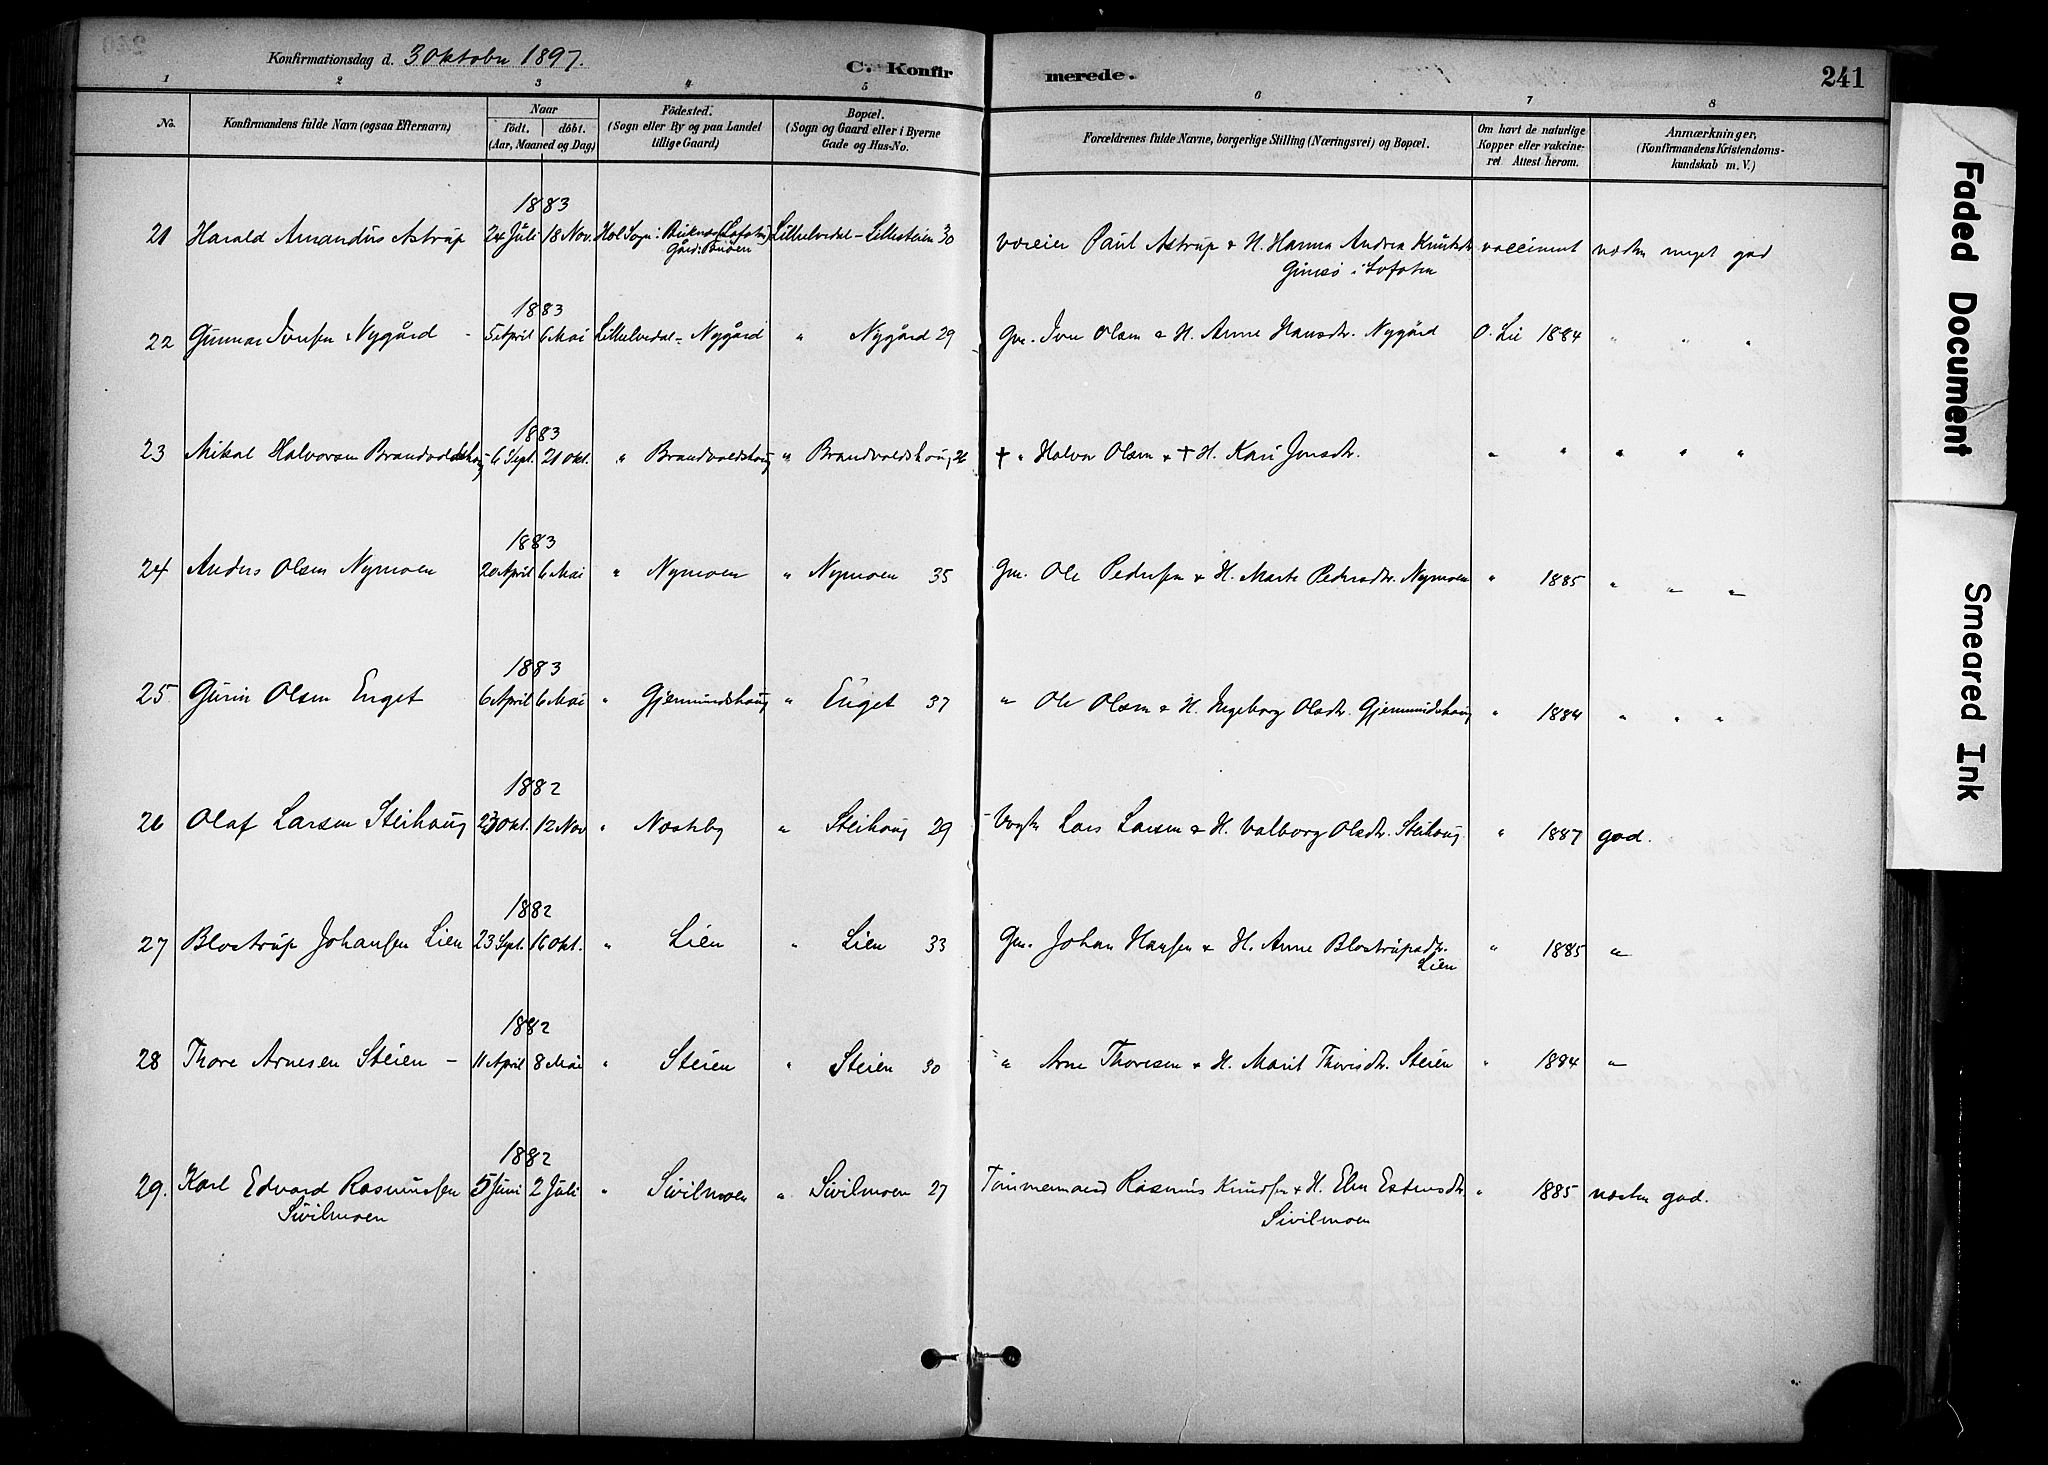 Konfirmationsdag d. 3 Oktober 1897.
C. Konfirmerede.
241
1 2 3 4 5 6 7 8
No.
Konfirmandens fulde Navn (ogsaa Efternavn)
Naar
födt. döbt.
(Aar, Maaned og Dag)
Födested.
(Sogn eller By og paa Landet
tillige Gaard)
Bopæl.
(Sogn og Gaard eller i Byerne
Gade og Hus-No.
Forældrenes fulde Navne, borgerlige Stilling (Næringsvei) og Bopæl.
Om havt de naturlige
Kopper eller vakcine-
ret Attest herom.
Anmærkninger,
(Konfirmandens Kristendoms-
kundskab m. V.)
1883
21 Harald Amandus Astrup 24 Juli 18 Nov. Hol Sogn: Lilleelvedal - Lillesteien 30 Paul Astrup & H. Hanna Andrea vaccineret næsten meget god
Gimsø i Lofoten
1883
22 Gunnar Iversen Nygård - 5 April 6 Mai Lilleelvedal - Nygård " Nygård 29 Gm. Iver Olsen & H. Anne Hansdtr. Nygård O. Lie 1884 " " "
1883
23 Mikal Halvorsen Brandvoldshaug 6 Sept. 21 Okt. " Brandvoldshaug " Brandvoldshaug 26 † " Halvor Olsen & † H. Kari Jonsdtr. " " " " "
1883
24 Anders Olsen Nymoen 20 April 6 Mai " Nymoen " Nymoen 35 Gm. Ole Pedersen & H. Marte Pedersdtr. Nymoen " 1885 " " "
1883
25. Olsen Enget 6 April 6 Mai " Gjermundshaug " Enget 37 " Ole Olsen & H. Ingeborg Olsdtr. Gjermundshaug " 1884 " " "
1882
26 Olaf Larsen Steihaug 23 Okt. 12 Nov " Nordby " Steihaug 29 Lars Larsen & H. Valborg Olsdtr. Steihaug " 1887 god.
1882
27 Blostrup Johansen Lien 23 Sept. 16 Okt. " Lien " Lien 33 Gm. Johan Hansen & H. Anne Blostrupsdtr. " 1885 "
Lien
1882
28 Thore Arnesen Steien - 11 April 8 Mai " Steien " Steien 30 " Arne Thoresen & H. Marit Thoresdtr. Steien " 1884 "
1882
29. Karl Edvard Rasmussen 5 Juni 2 Juli " Sivilmoen " Sivilmoen 27 Tømmermand Rasmus Knudsen & H. Elen Estensdtr. " 1885 næsten god.
Sivilmoen Sivilmoen
Faded Document
Smeared Ink